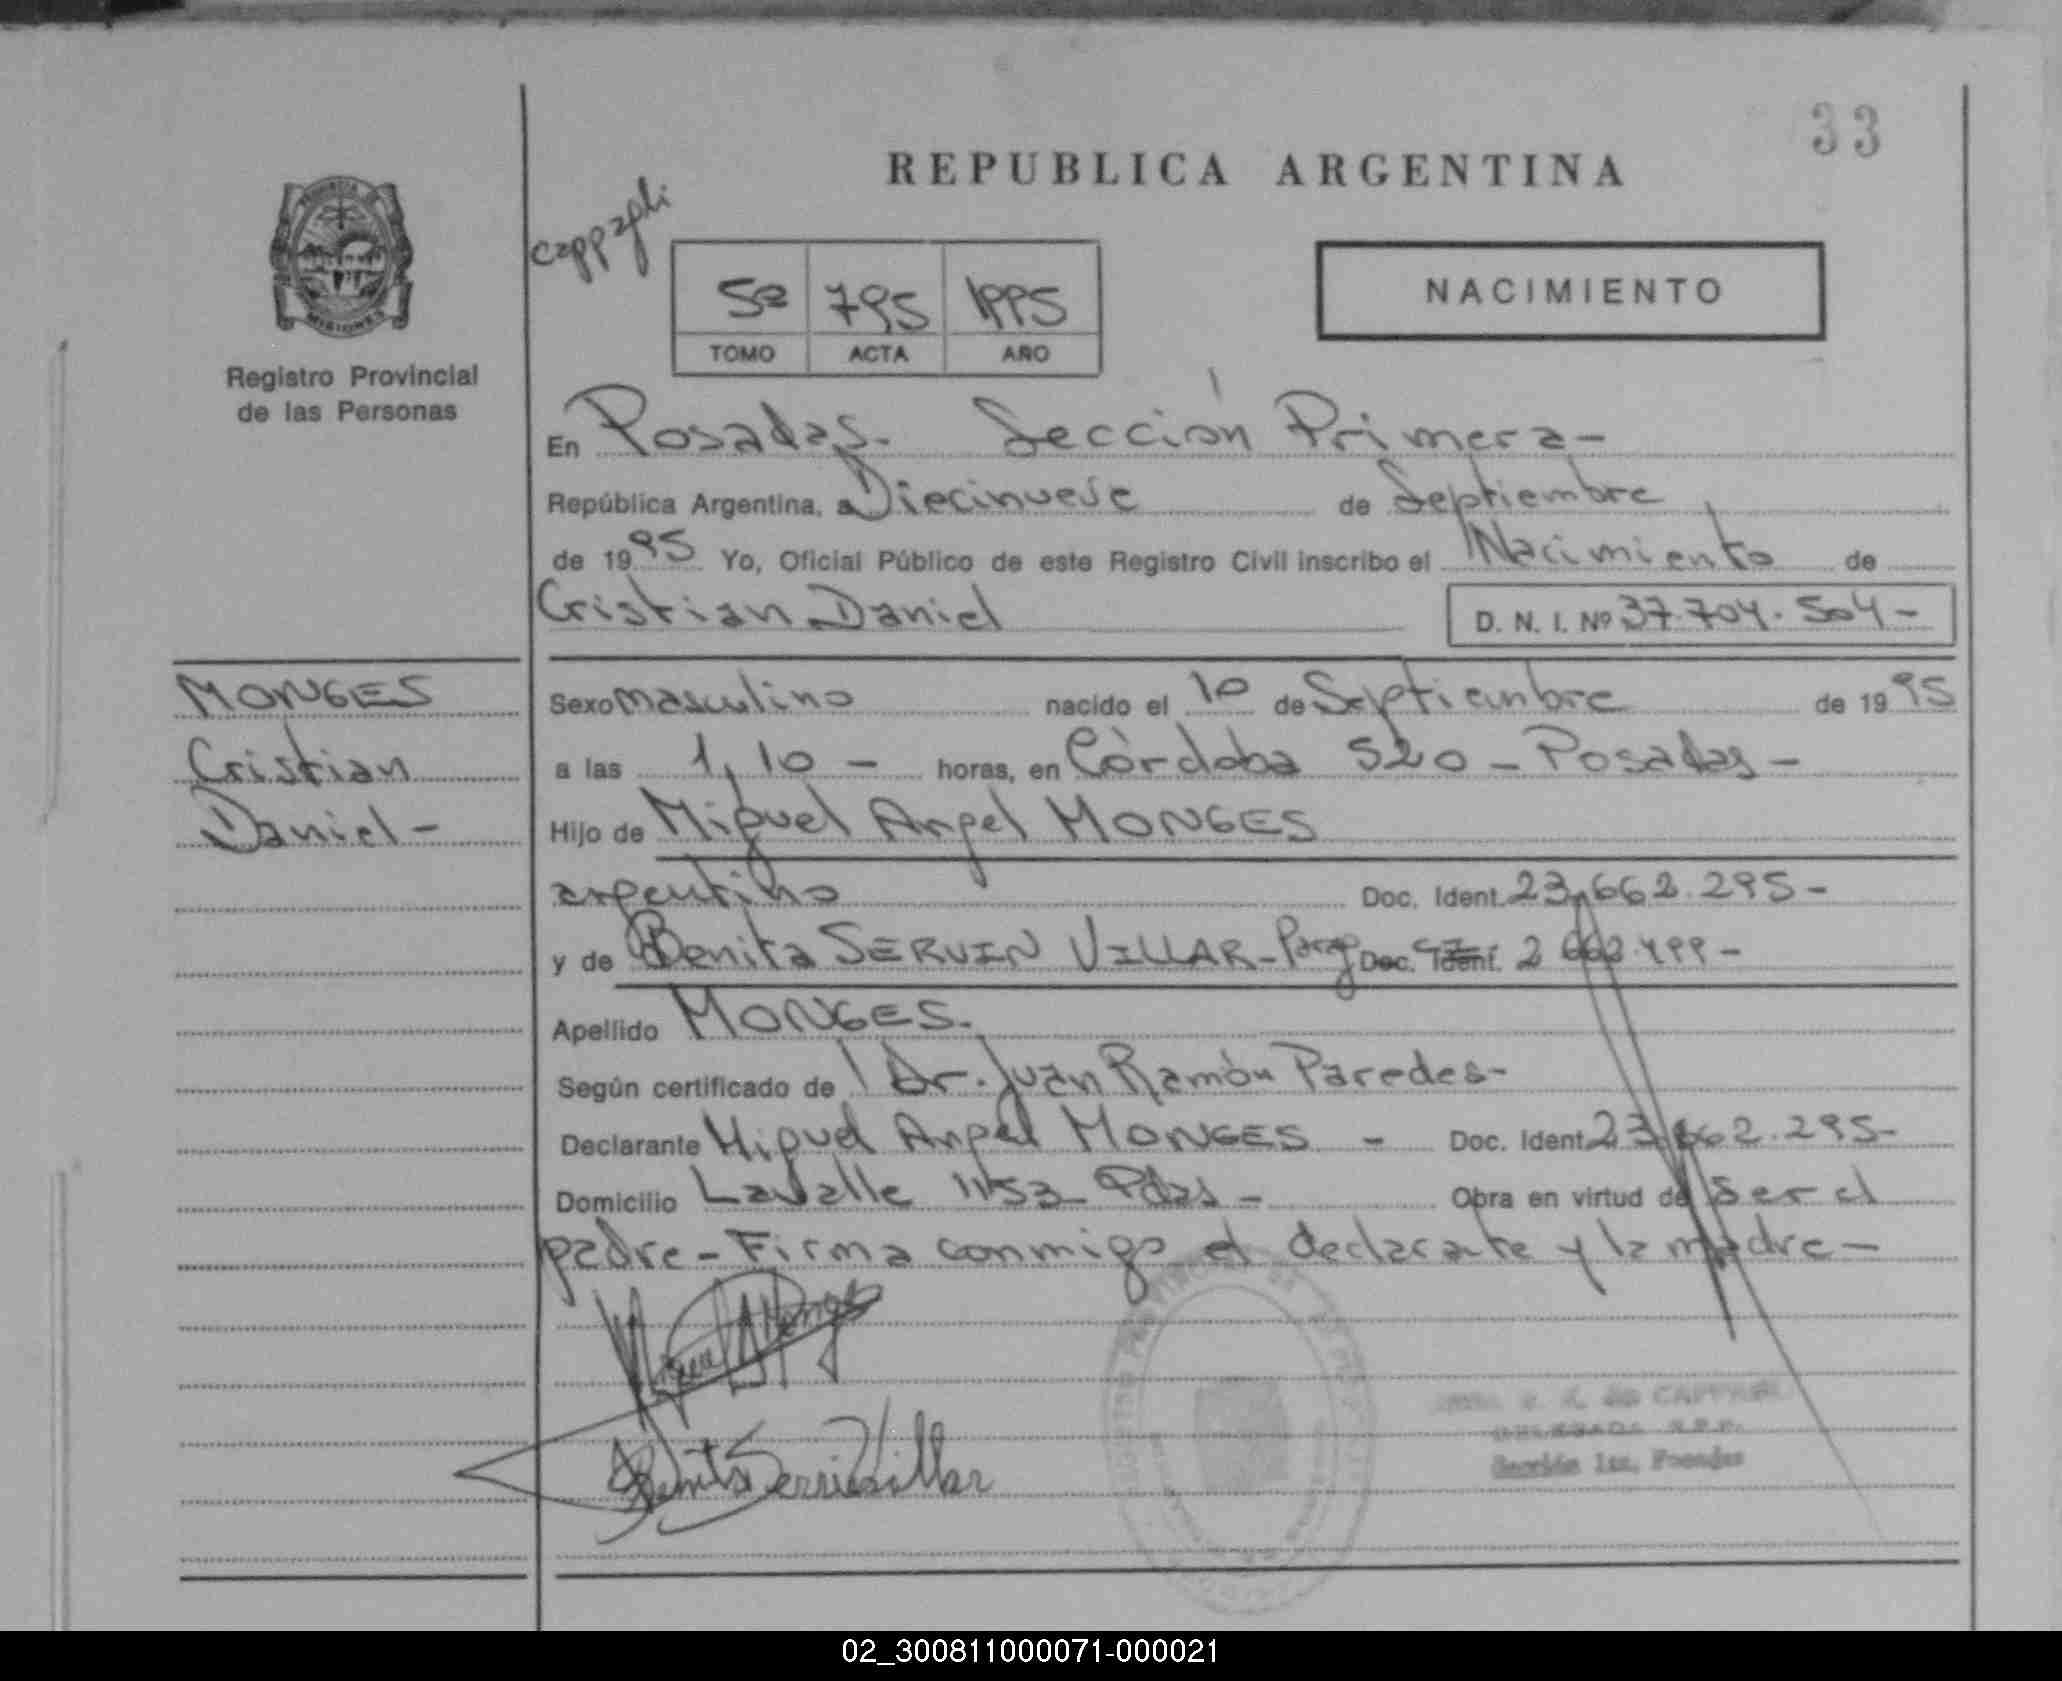 33
REPUBLICA ARGENTINA
cappagli
NACIMIENTO
5º 795 1995
TOMO ACTA AÑO
MISIONES
Registro Provincial
de las Personas
En Posadas. Sección Primera-
República Argentina, a Diecinueve de Septiembre
de 1995 Yo, Oficial Público de este Registro Civil inscribo el Nacimiento de
Cristian Daniel D. N. I. Nº 37.704.504-
MONGES
Cristian
Daniel-
Sexo masculino nacido el 10 de Septiembre de 1995
a las 1,10 - horas, en Córdoba 520 - Posadas -
Hijo de Miguel Angel MONGES
argentino Doc. Ident. 23.662.295-
y de Benita SERVIN VILLAR- Parag Doc. Ident. C.I. 2 662.499-
Apellido MONGES.
Según certificado de Dr. Juan Ramón Paredes-
Declarante Miguel Angel MONGES - Doc. Ident 23.662.295-
Domicilio Lavalle 1153 - Pdas - Obra en virtud de ser el
padre - Firma conmigo el declarante y la madre -
Benita Servin Villar
DELEGADA R.P.P.
Sección 1ra. Posadas
02_300811000071-000021